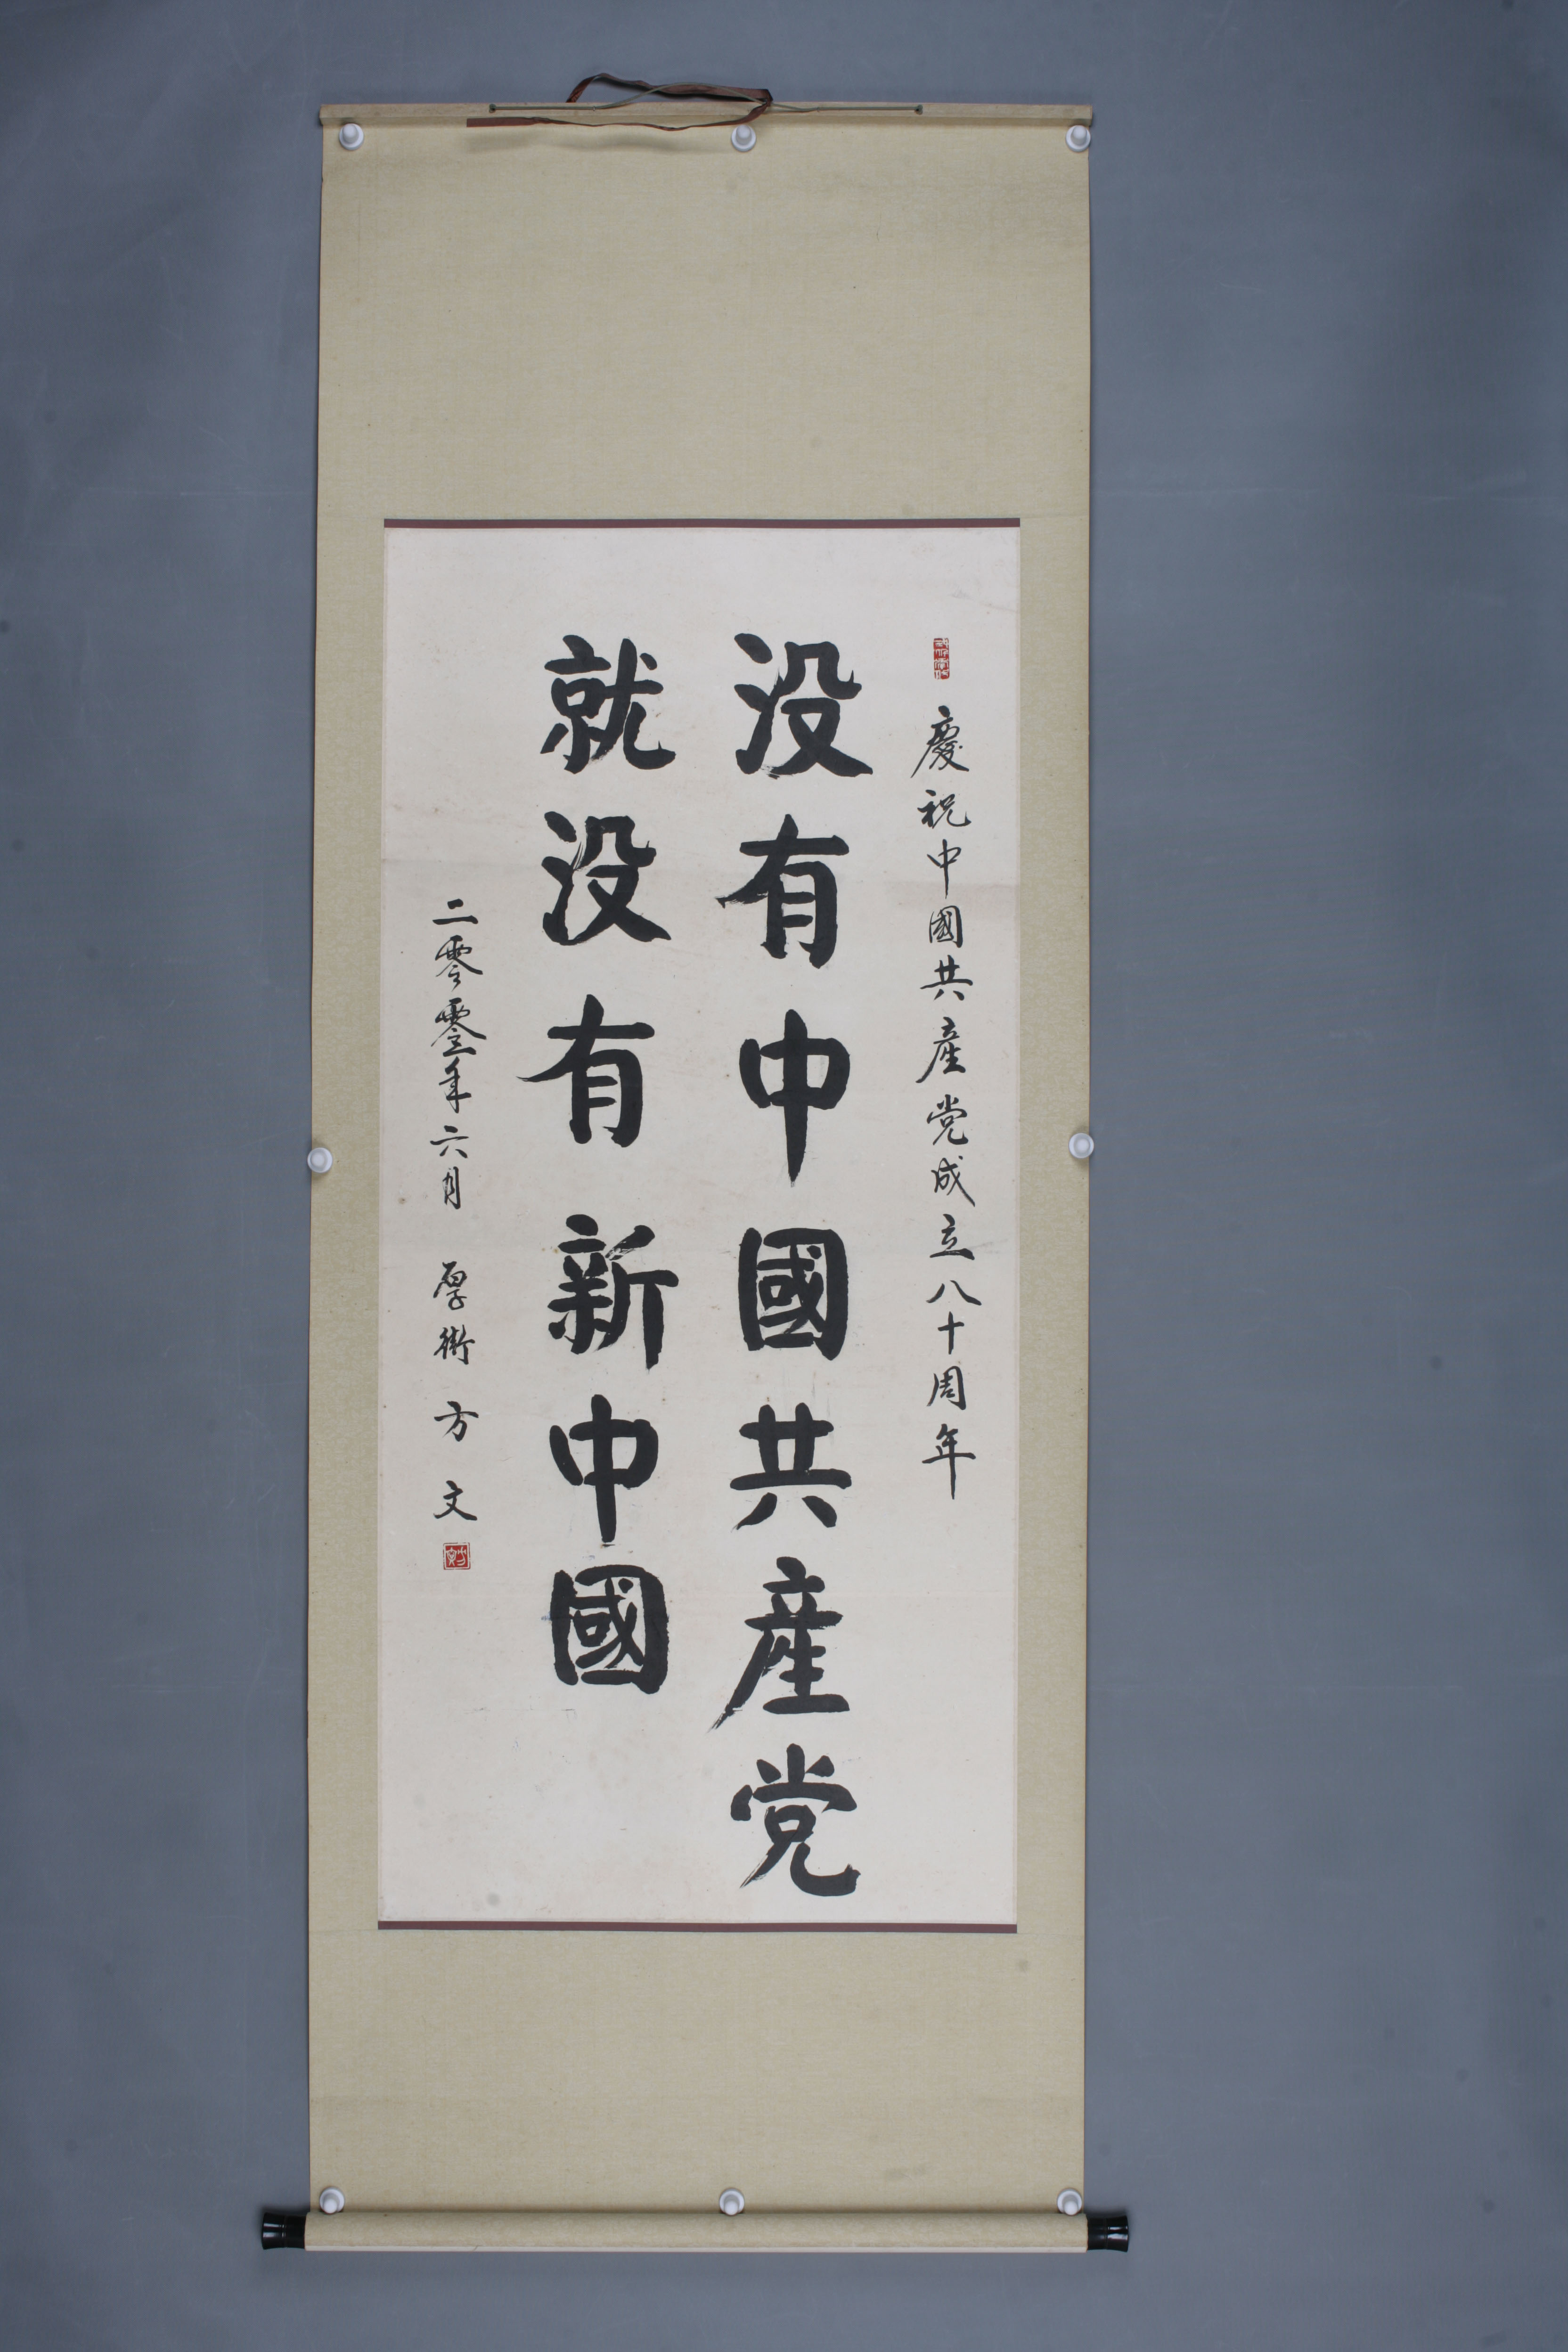 慶祝中國共産党成立八十周年
没有中國共産党
就没有新中國
二零零一年六月 厚街 方文